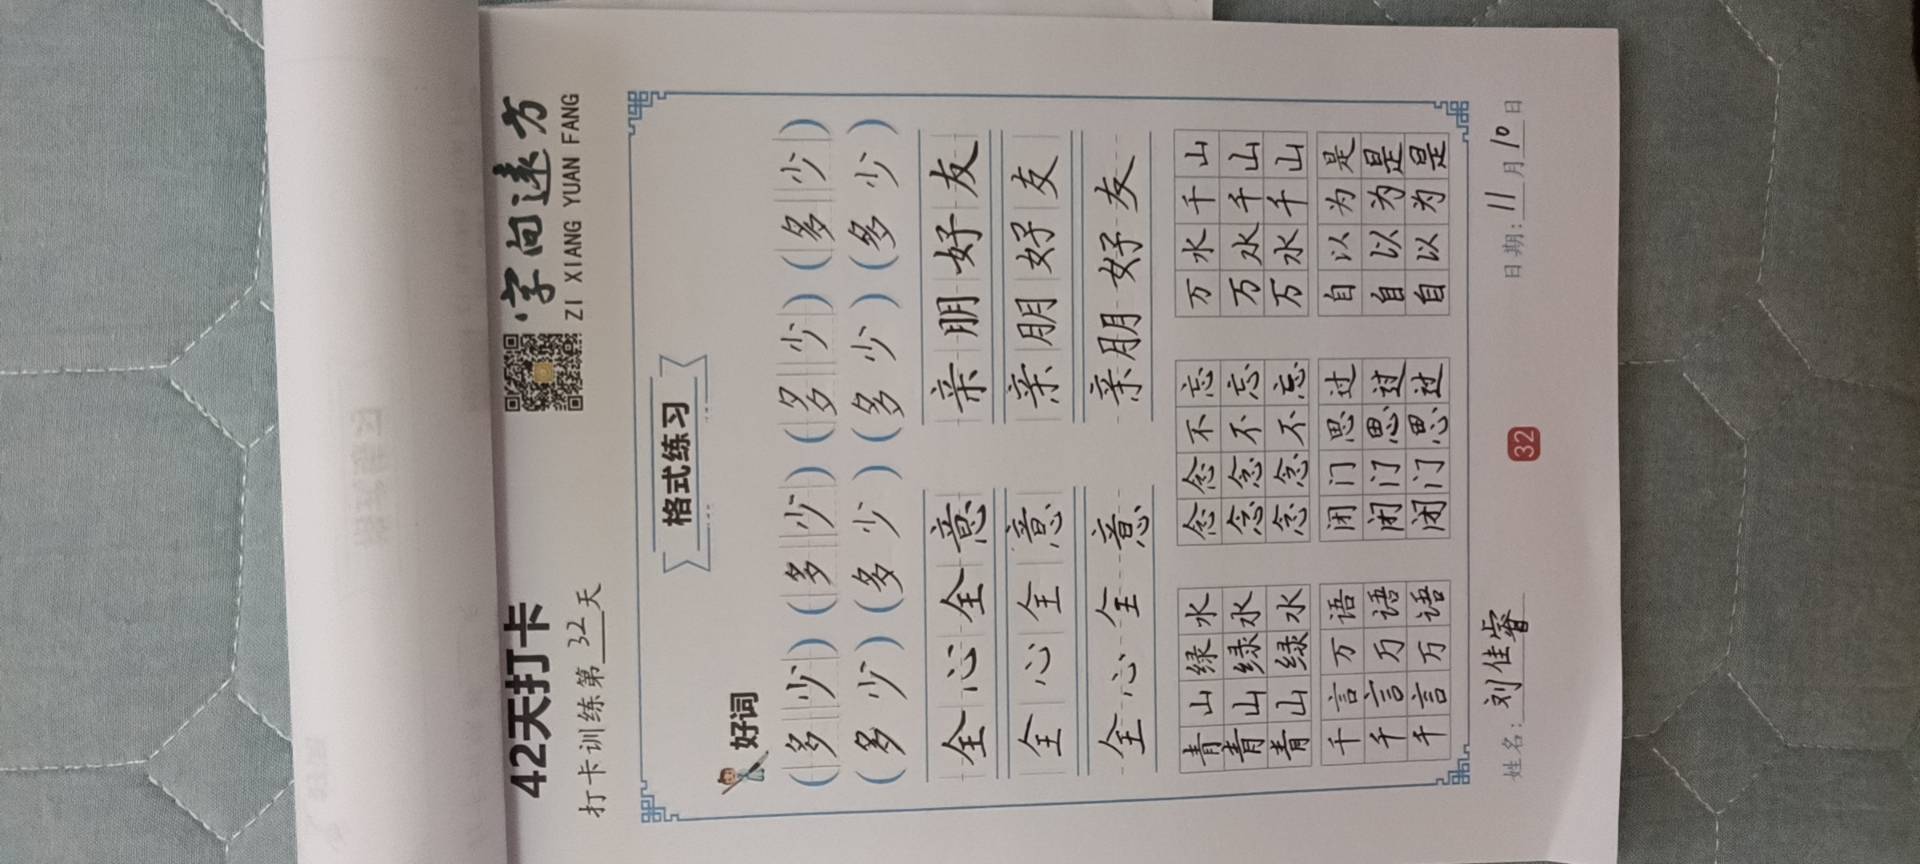 42天打卡
字向远方
ZI XIANG YUAN FANG
打卡训练第32天
格式练习
好词
(多少)(多少)(多少)(多少)
(多少)(多少)(多少)(多少)
全心全意 亲朋好友
全心全意 亲朋好友
全心全意 亲朋好友
青山绿水 念念不忘 万水千山
青山绿水 念念不忘 万水千山
青山绿水 念念不忘 万水千山
千言万语 闭门思过 自以为是
千言万语 闭门思过 自以为是
千言万语 闭门思过 自以为是
姓名:刘佳睿 日期:11月10日
32